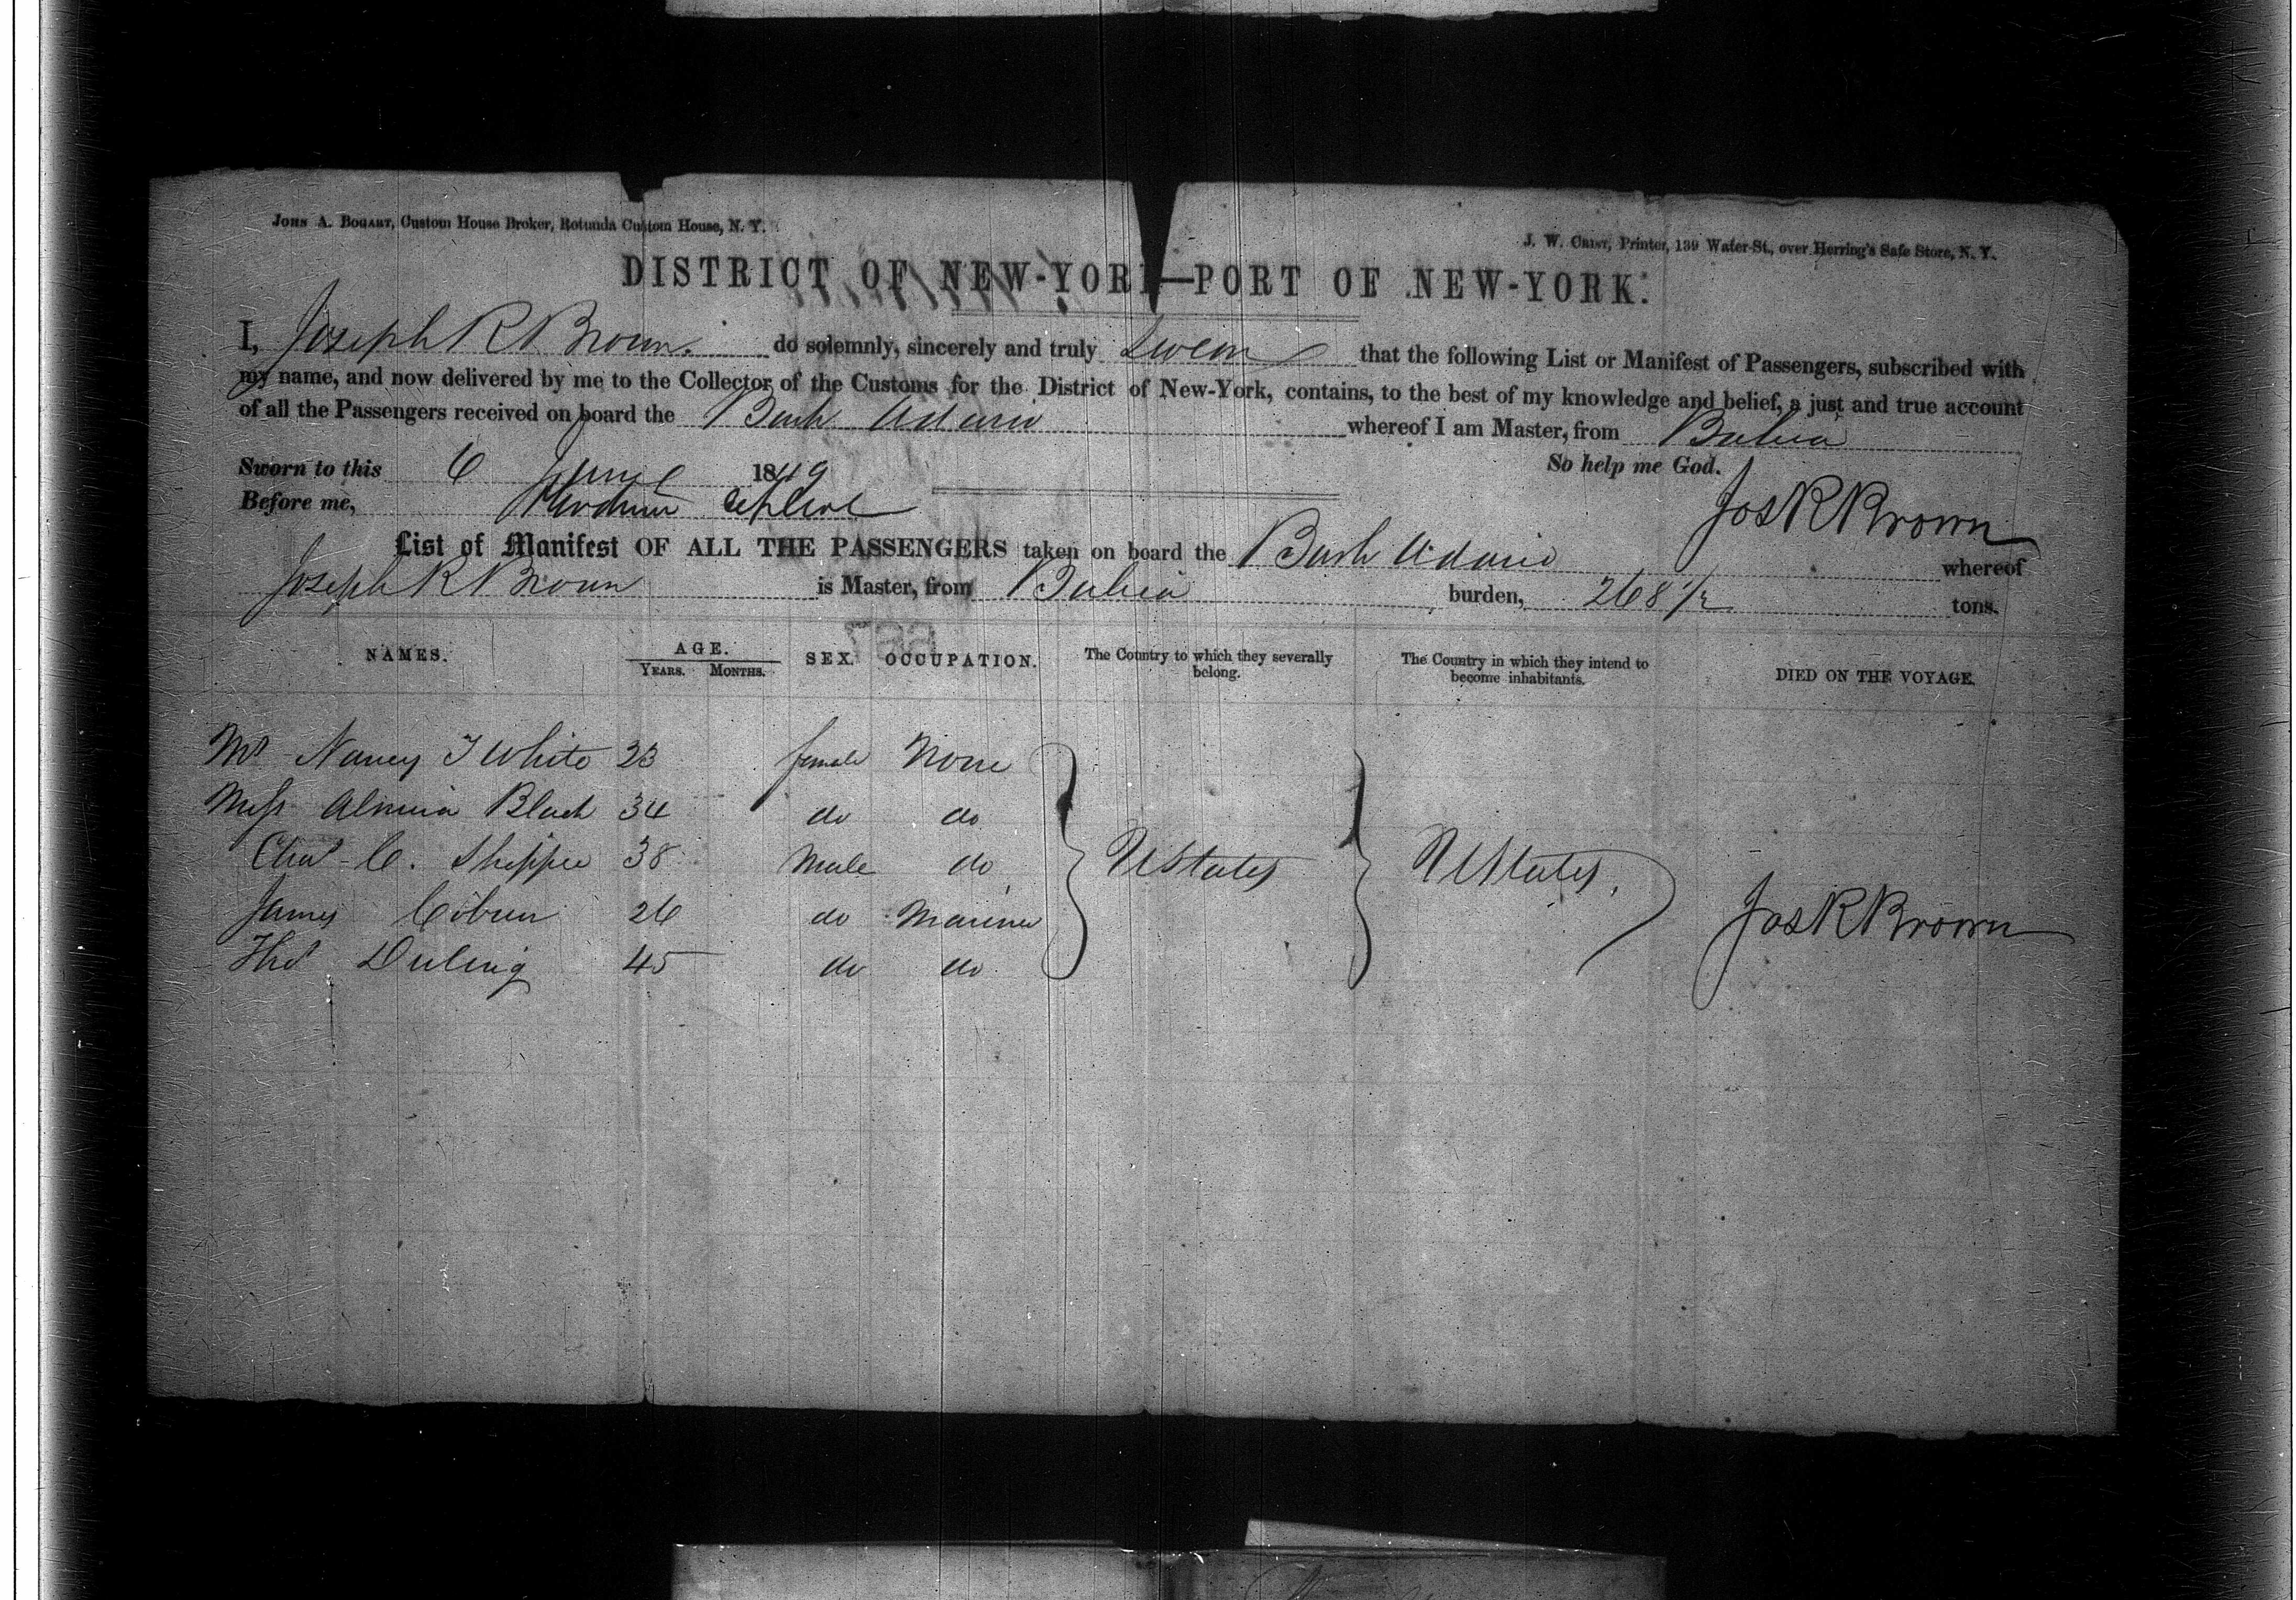 JOHN A. BOGART, Custom House Broker, Rotunda Custom House, N. Y.
J. W. CRIST, Printer, 139 Water-St., over Herring's Safe Store, N. Y.
DISTRICT OF NEW-YORK—PORT OF NEW-YORK.
I, Joseph R Brown. do solemnly, sincerely and truly Swear that the following List or Manifest of Passengers, subscribed with
my name, and now delivered by me to the Collector of the Customs for the District of New-York, contains, to the best of my knowledge and belief, a just and true account
of all the Passengers received on board the Bark Adario whereof I am Master, from Bahia
Sworn to this 6 June 1849 So help me God.
Before me, Jos R Brown
List of Manifest OF ALL THE PASSENGERS taken on board the Bark Adario whereof
Joseph R Brown is Master, from Bahia burden, 268 1/2 tons.
NAMES. AGE. YEARS. MONTHS. SEX. OCCUPATION. The Country to which they severally belong. The Country in which they intend to become inhabitants. DIED ON THE VOYAGE.
Mrs Nancy T White 23 female None
Miss Almira Black 34 do do
Chas C. Sheppee 38 Male do UStates UStates.
James Coburn 26 do Mariner Jos R Brown
Thos Duling 45 do do